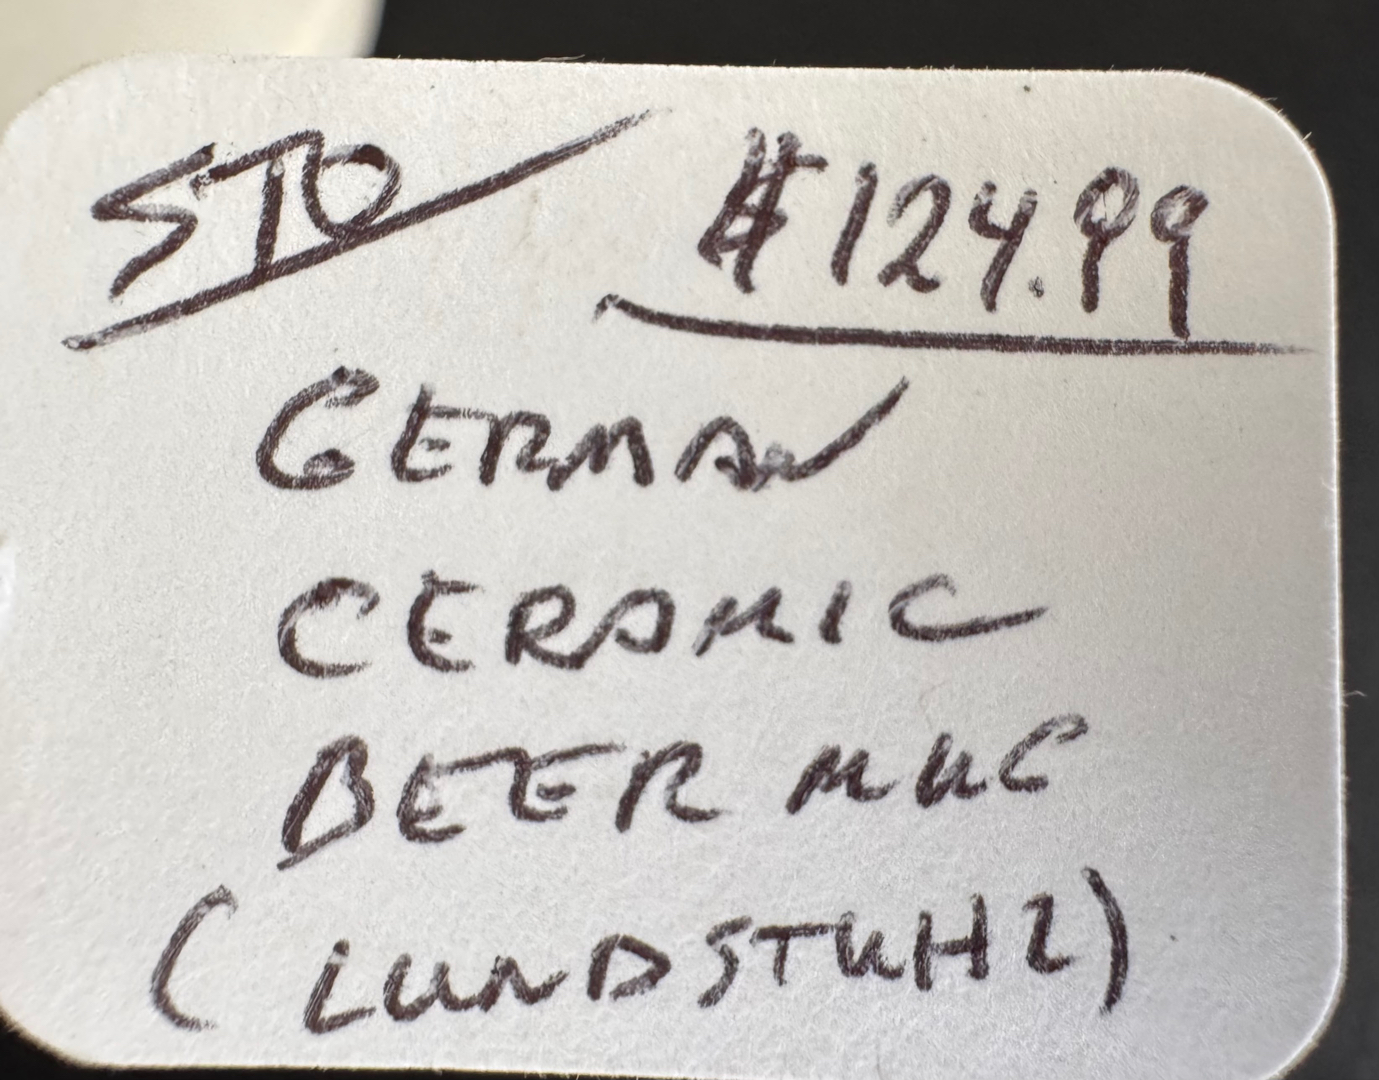 STO $124.99
GERMAN
CERAMIC
BEER MUG
(LUNDSTUHL)